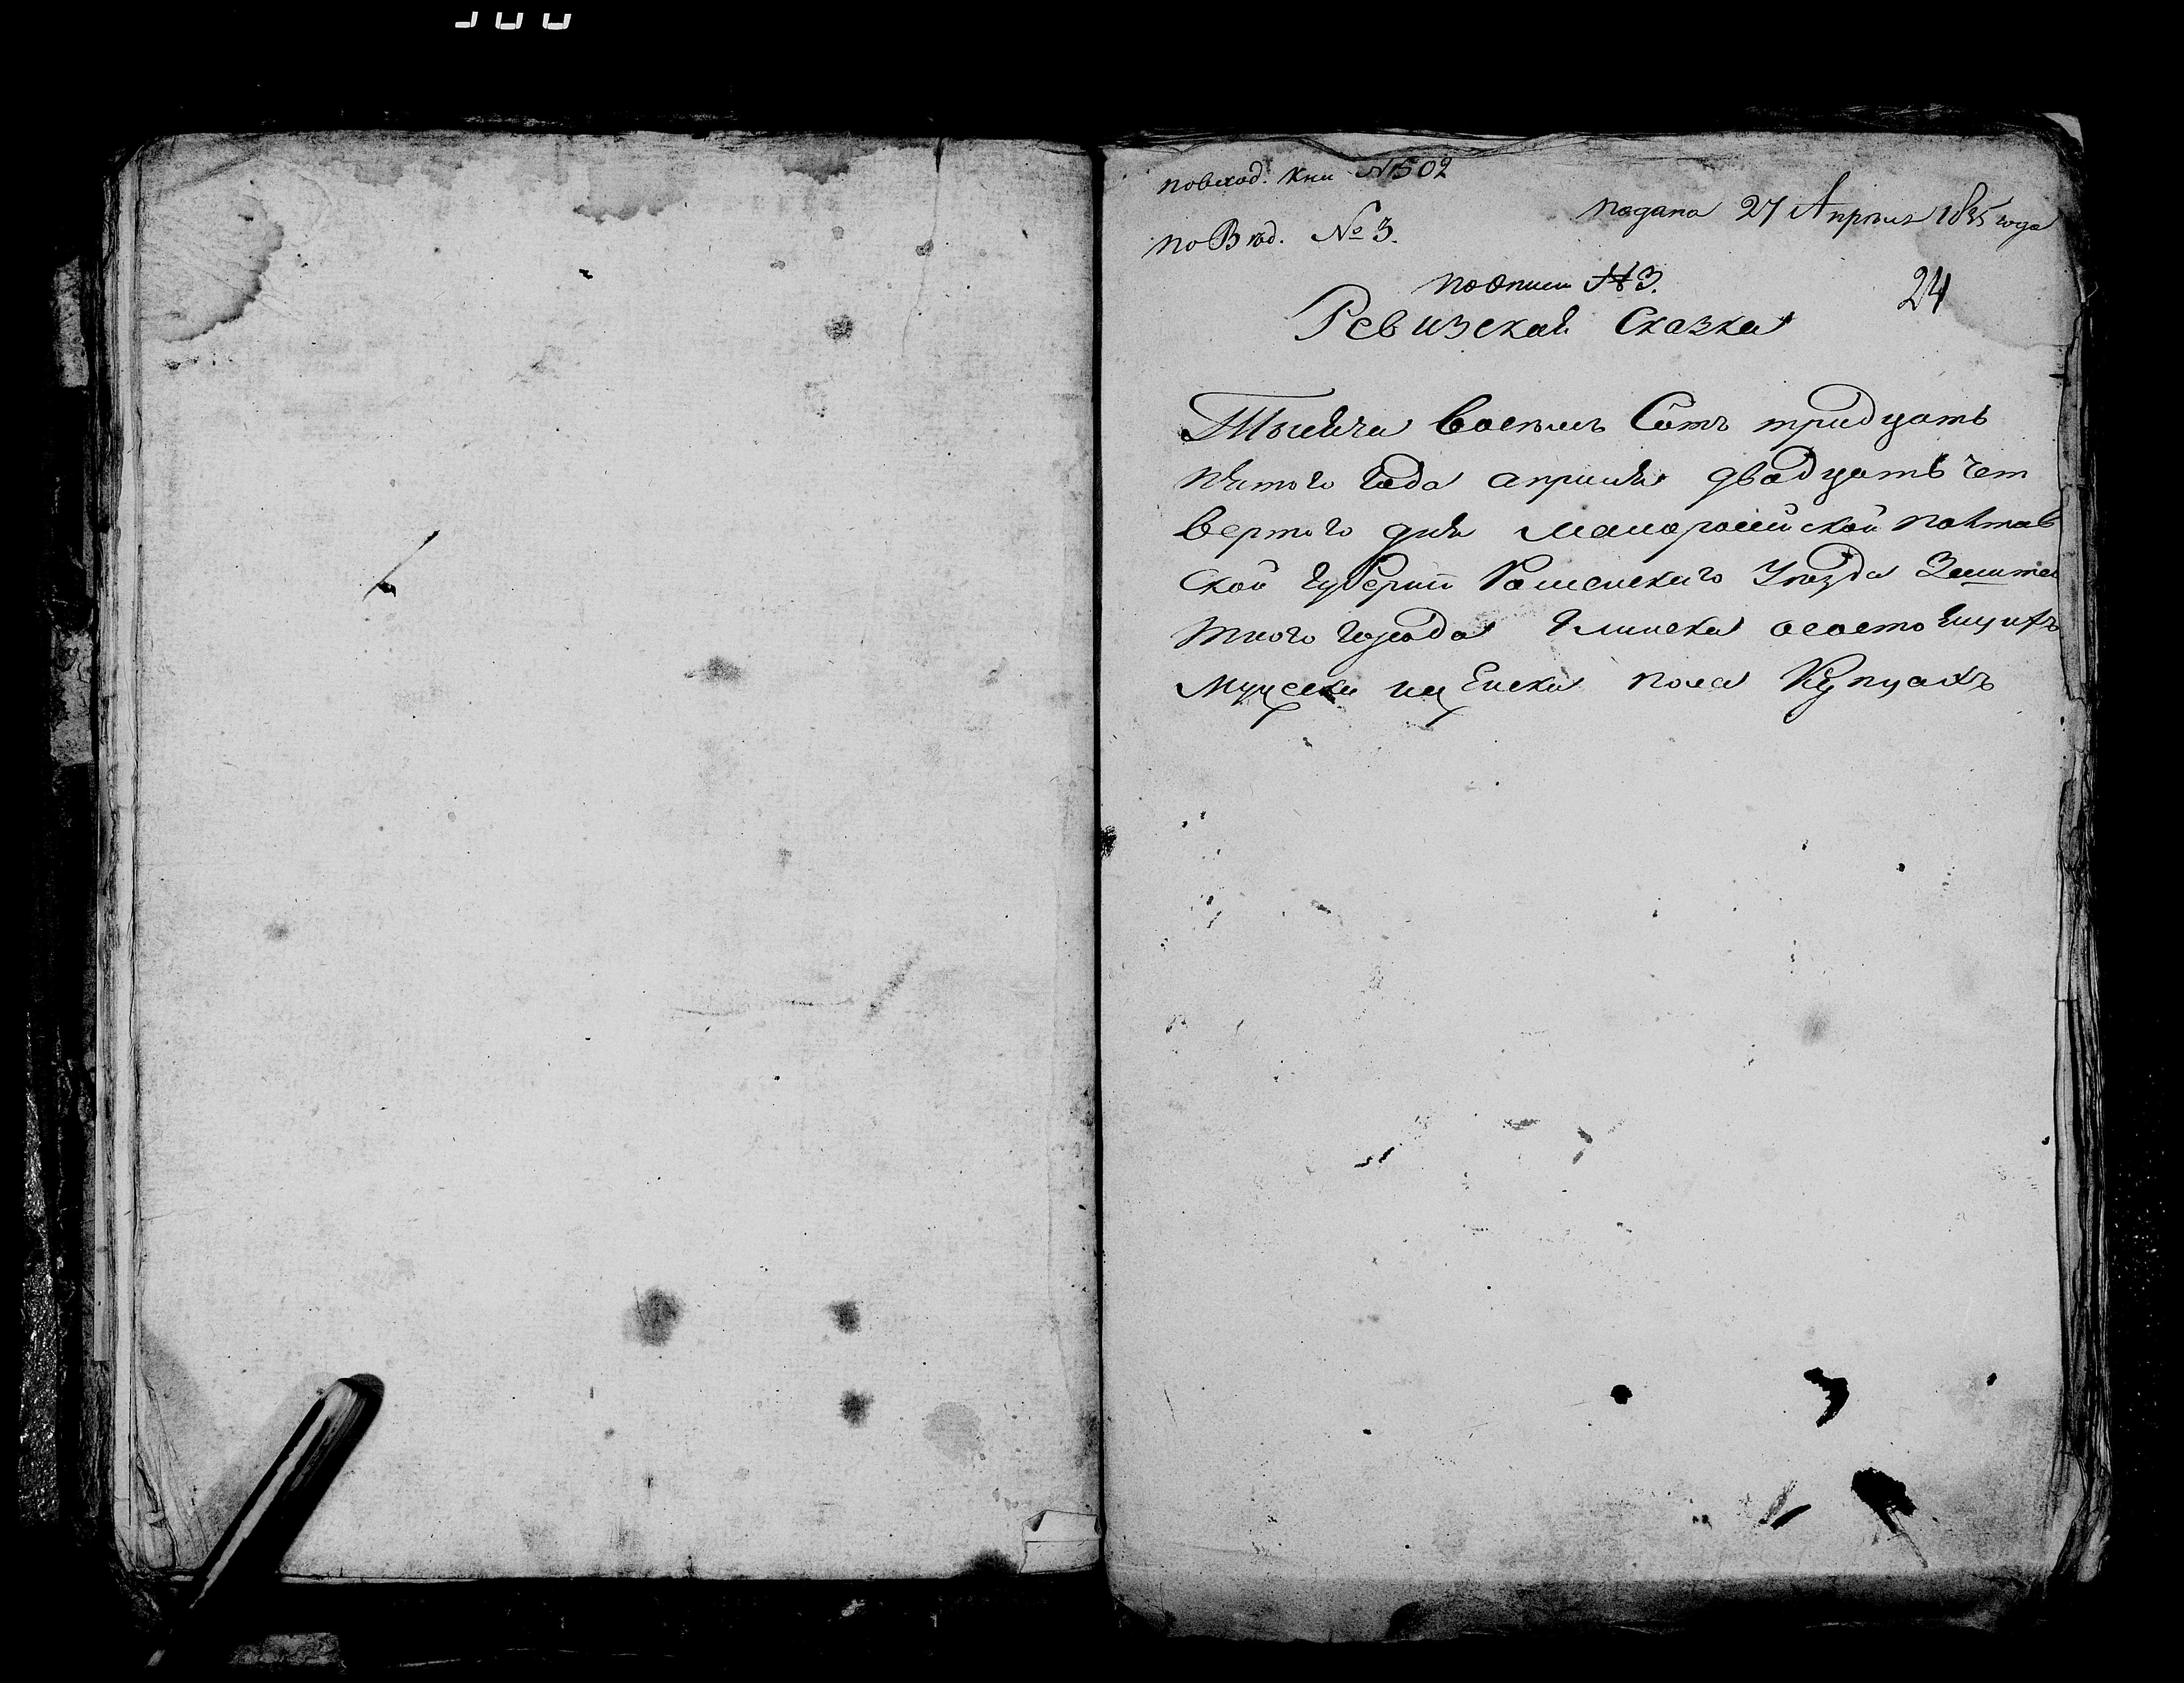 повход. Кни №502
подана 27 Апреля 1835 года
по Вѣд. № 3.
поописи №3.
24
Ревизская Сказка
Тысяча восемь Сотъ тридцать
пятого Года апреля двадцать чет
вертого дня малороссийской полтав
ской Губернiи Роменского Уѣзда Зашта
тного города Глинска осостоящихъ
мужеска иженска пола Купцахъ